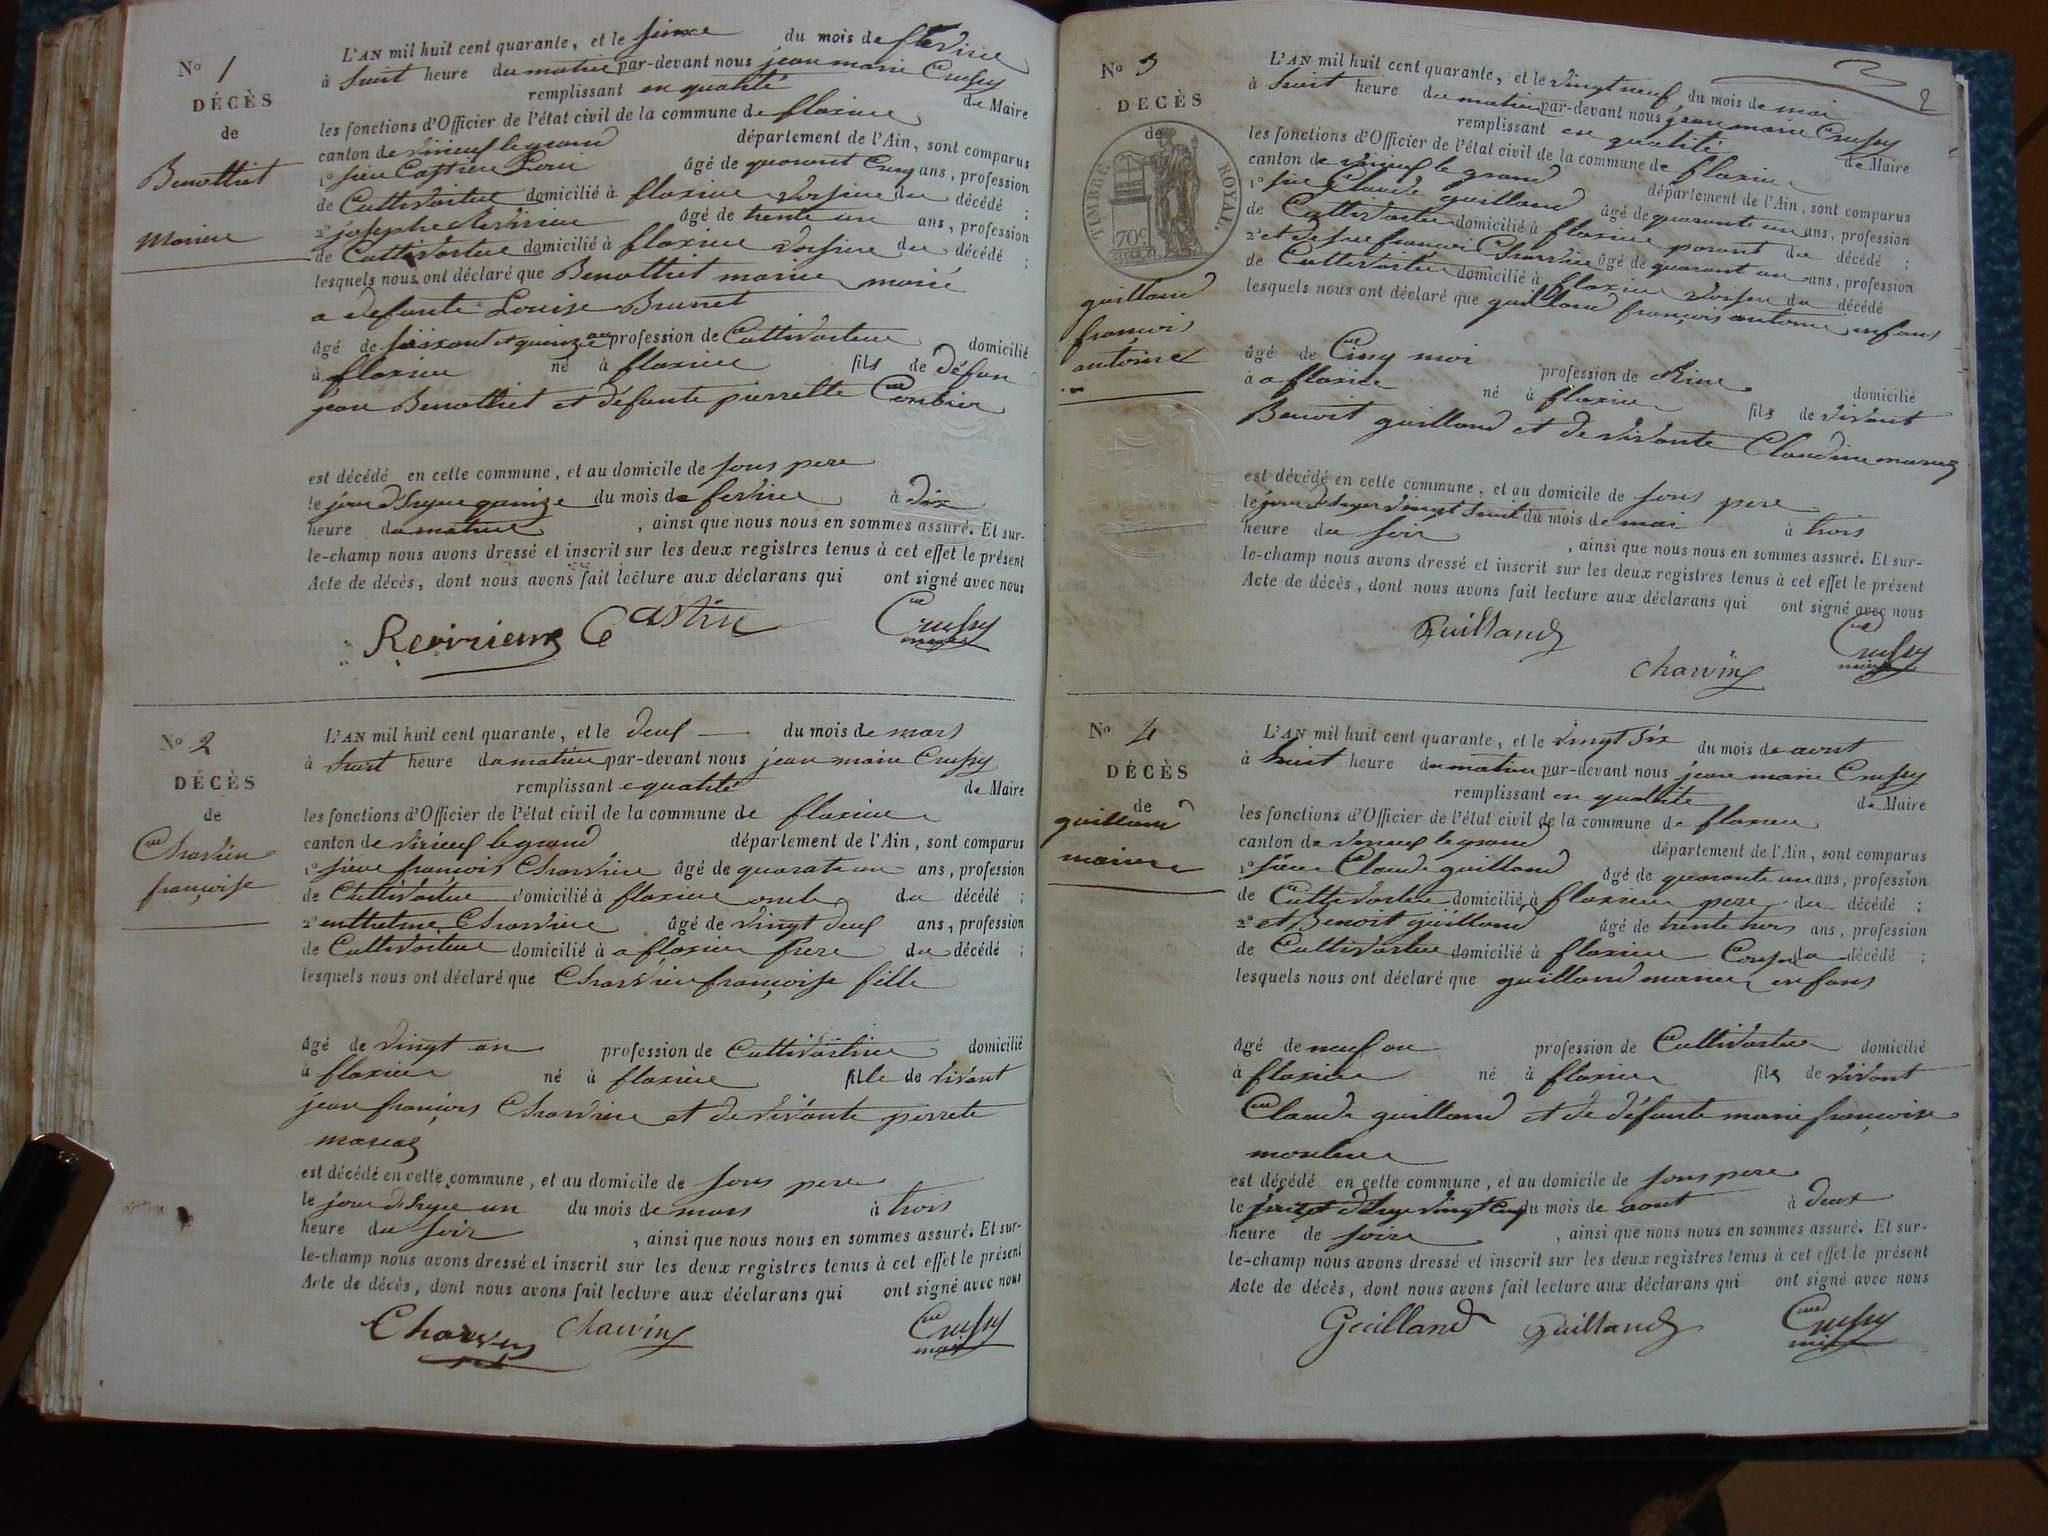 No 1
DÉCÈS
de
Benotthit
L'AN mil huit cent quarante, et le du mois de
à huit heure du matin par-devant nous jean marie Crussy
remplissant en qualité de Maire
les fonctions d'Officier de l'état civil de la commune de flaxieu
canton de virieu le grand département de l'Ain, sont comparus
1° sieur Castin âgé de quarant cinq ans, profession
de Cultivateur domicilié à flaxieu voisin du décédé ;
2° josephe âgé de trente un ans, profession
de Cultivateur domicilié à flaxieu voisin du décédé ;
lesquels nous ont déclaré que Benotthit marié
a defunte Louise Brunet
âgé de soixant et quinze an profession de Cultivateur domicilié
à flaxieu né à flaxieu fils de défun
jean Benotthit et défunte pierrette Conbier
est décédé en cette commune, et au domicile de sons pere
le jour d'hyer quinze du mois de à dix
heure du matin , ainsi que nous nous en sommes assuré. Et sur-
le-champ nous avons dressé et inscrit sur les deux registres tenus à cet effet le présent
Acte de décès, dont nous avons fait lecture aux déclarans qui ont signé avec nous
Castin Crussy
maire
No 2
DÉCÈS
de
Charvin
françoise
L'AN mil huit cent quarante, et le deus du mois de mars
à huit heure du matin par-devant nous jean marie Crussy
remplissant e qualité de Maire
les fonctions d'Officier de l'état civil de la commune de flaxieu
canton de virieu le grand département de l'Ain, sont comparus
1° sieur françois Charvin âgé de quarate un ans, profession
de Cultivateur domicilié à flaxieu oncle du décédé ;
2° Charvin âgé de vingt deus ans, profession
de Cultivateur domicilié à a flaxieu frere du décédé ;
lesquels nous ont déclaré que Charvin françoise fille
âgé de vingt an profession de Cultivatrice domicilié
à flaxieu né à flaxieu fille de vivant
jean françois Charvin et de vivante perrete
est décédé en cette commune, et au domicile de sons pere
le jour d'hyer un du mois de mars à trois
heure du soir , ainsi que nous nous en sommes assuré. Et sur-
le-champ nous avons dressé et inscrit sur les deux registres tenus à cet effet le présent
Acte de décès, dont nous avons fait lecture aux déclarans qui ont signé avec nous
Charvin charvin Crussy
maire
2
No 3
DECÈS
de
TIMBRE ROYAL.
70c
guilland
françois
antoine
L'AN mil huit cent quarante, et le vingt neuf du mois de mai
à huit heure du matin par-devant nous jean marie Crussy
remplissant en qualité de Maire
les fonctions d'Officier de l'état civil de la commune de flaxieu
canton de virieu le grand département de l'Ain, sont comparus
1° sieur Claude guilland âgé de quarante un ans, profession
de Cultivateur domicilié à flaxieu parant du décédé ;
2° et de sieur françois Charvin âgé de quarant un ans, profession
de Cultivateur domicilié à flaxieu voisin du décédé
lesquels nous ont déclaré que guilland françois antoine enfans
âgé de Cinq moi profession de Rien domicilié
à a flaxieu né à flaxieu fils de vivant
Benoit guilland et de vivante Claudine
est décédé en cette commune, et au domicile de sons pere
le jour d'hyer vingt huit du mois de mai à trois
heure du soir , ainsi que nous nous en sommes assuré. Et sur-
le-champ nous avons dressé et inscrit sur les deux registres tenus à cet effet le présent
Acte de décès, dont nous avons fait lecture aux déclarans qui ont signé avec nous
Guilland Crussy
charvin maire
No 4
DÉCÈS
de
guilland
L'AN mil huit cent quarante, et le vingt six du mois de aout
à huit heure du matin par-devant nous jean marie Crussy
remplissant en qualité de Maire
les fonctions d'Officier de l'état civil de la commune de flaxieu
canton de virieu le grand département de l'Ain, sont comparus
1° sieur Claude guilland âgé de quarante un ans, profession
de Cultivateur domicilié à flaxieu pere du décédé ;
2° et Benoit guilland âgé de trente trois ans, profession
de Cultivateur domicilié à flaxieu du décédé ;
lesquels nous ont déclaré que guilland enfans
âgé de neuf an profession de Cultivateur domicilié
à flaxieu né à flaxieu fils de vivant
Claude guilland et de défunte marie françoise
est décédé en cette commune, et au domicile de sons pere
le d'hyer vingt cinq du mois de aout à deux
heure de soire , ainsi que nous nous en sommes assuré. Et sur-
le-champ nous avons dressé et inscrit sur les deux registres tenus à cet effet le présent
Acte de décès, dont nous avons fait lecture aux déclarans qui ont signé avec nous
Guilland Guilland Crussy